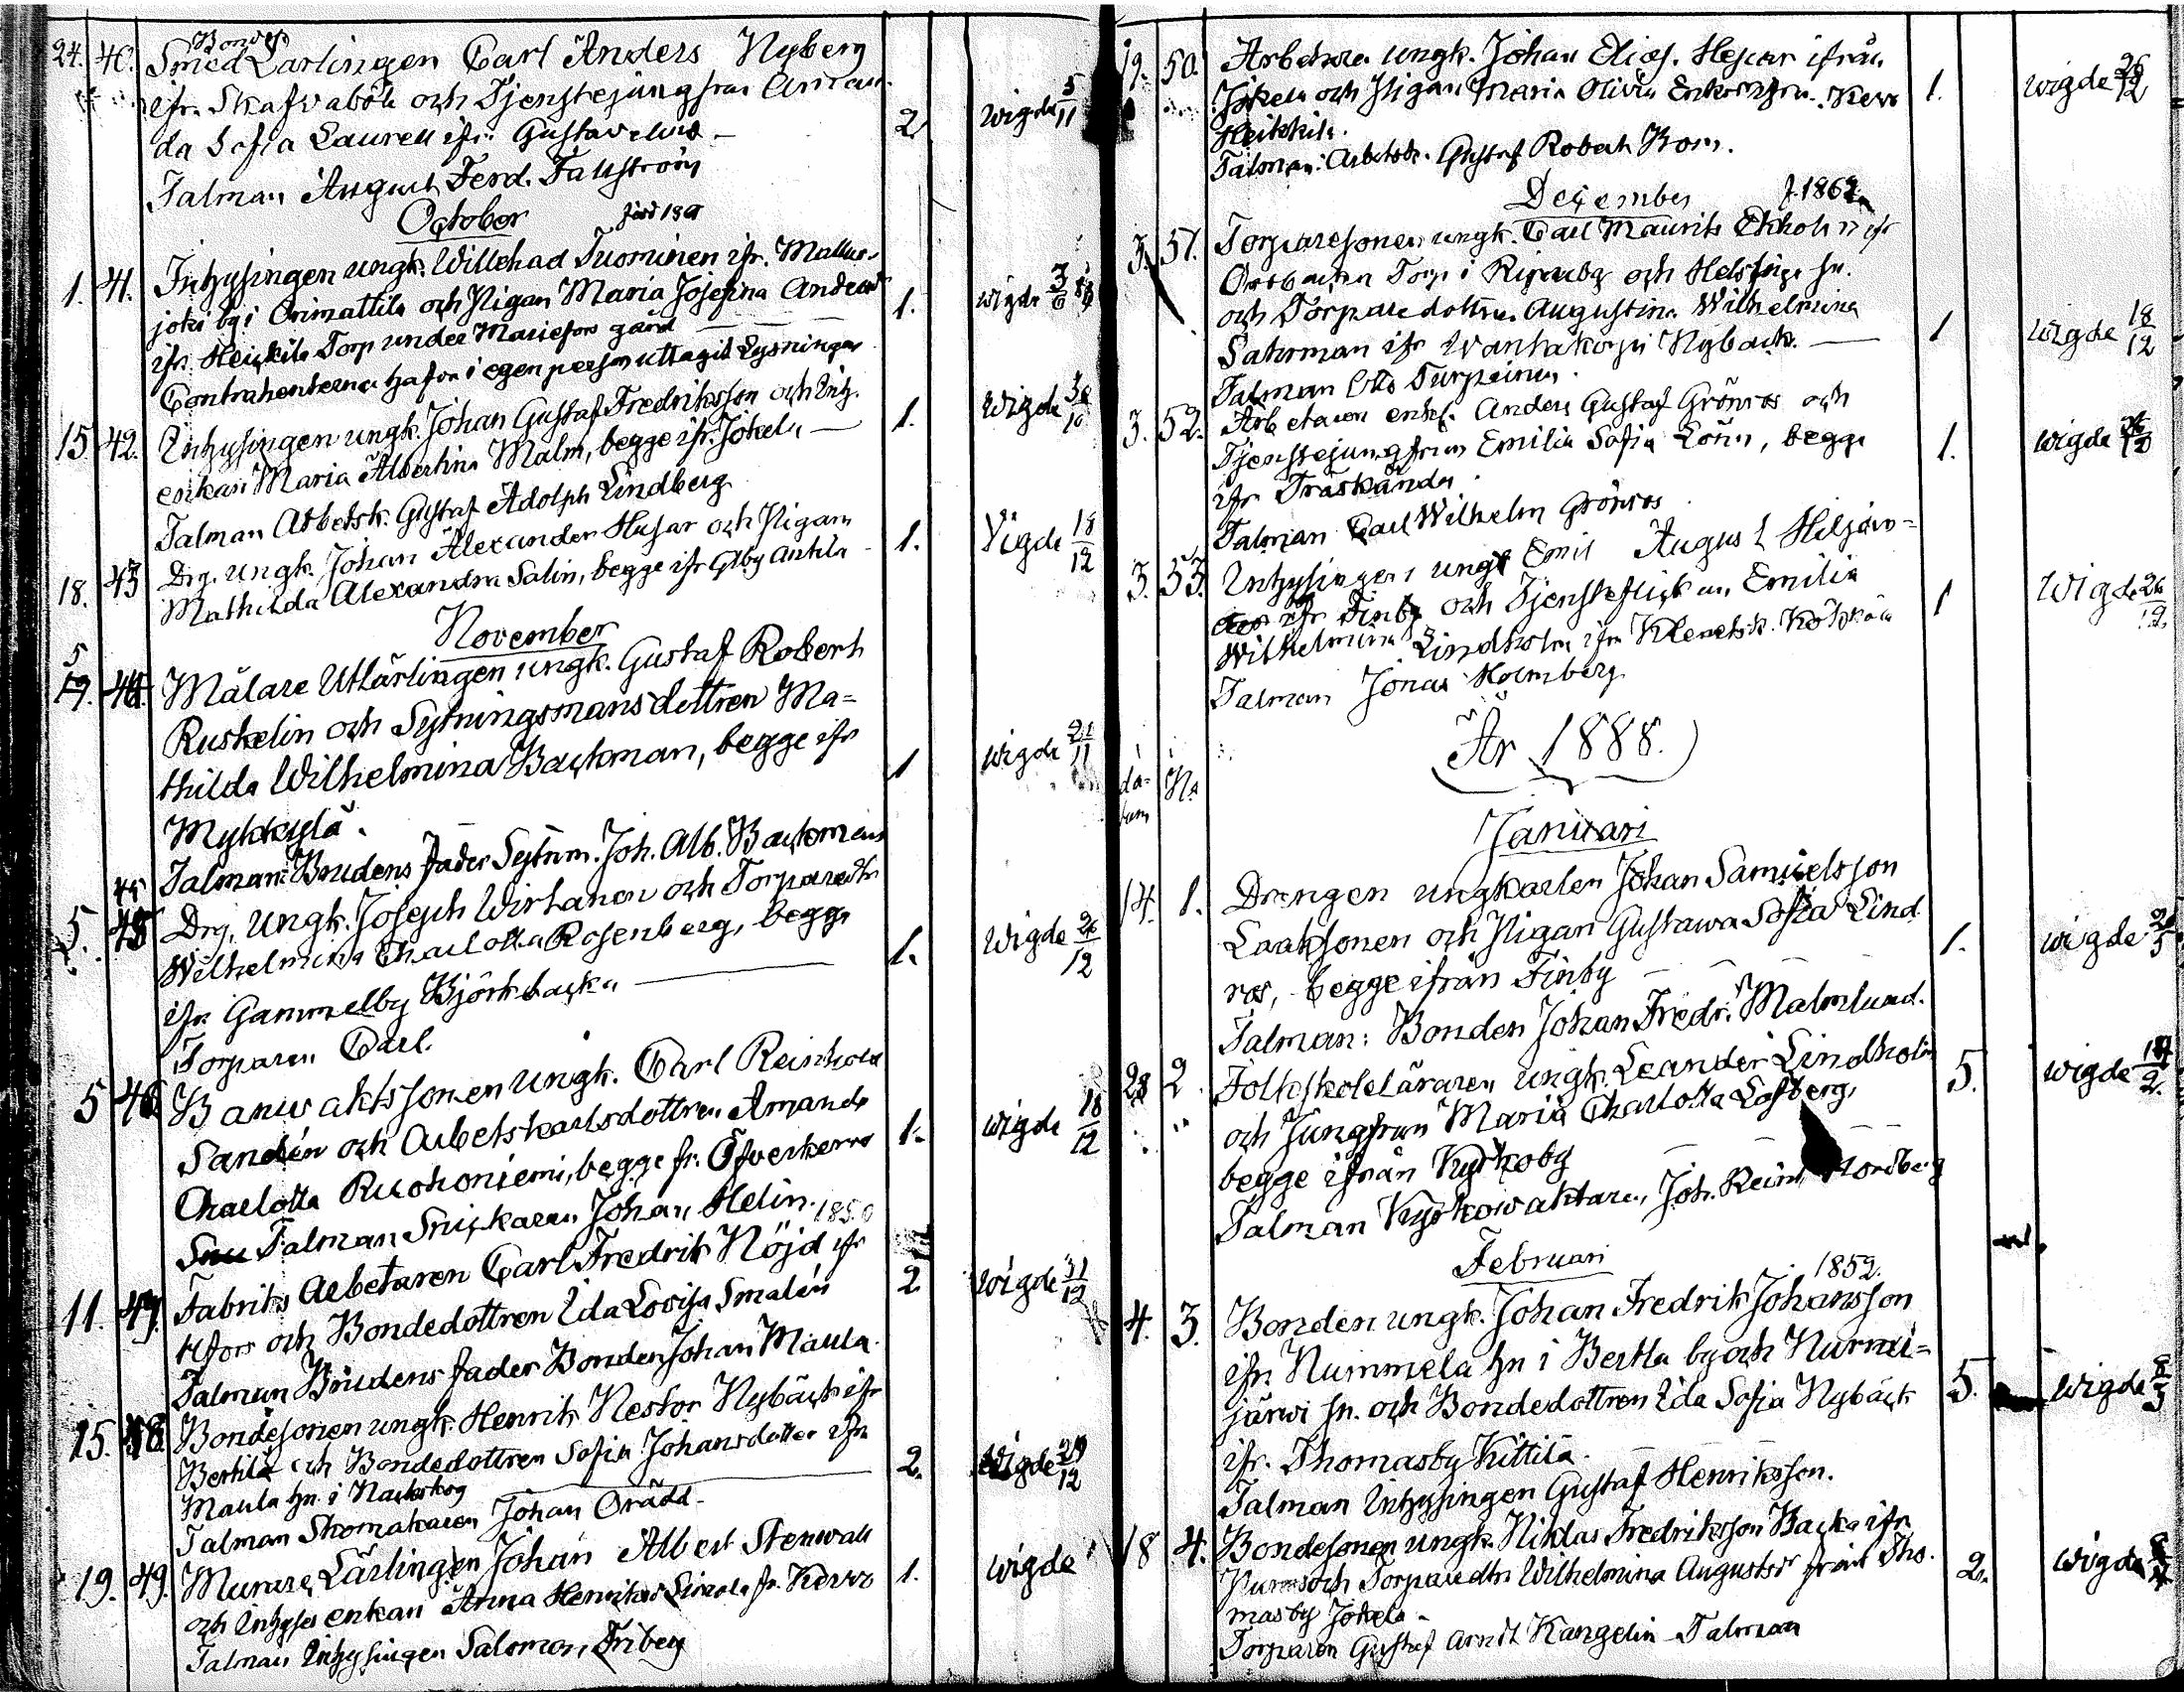 24. 40. Bonde
Smed Lärlingen Carl Anders Nyberg
ifr. Skafvaböle och Tjenstejungfrun Aman-
da Sofia Laurell ifr. Gustavelund 2 wigde 5/11
Talman August Ferd. Fallström
October
1. 41. Inhysingen ungk. Willehad Tuominen ifr. Mallus-
joki by i Orimattila och Pigan Maria Josefina Anders 1. wigde
ifr. Heikkilä Torp under Mariefors gård
Contrahenterna hafva i egen person uttagit Lysningen
15 42. Inhysingen ungk. Johan Gustaf Fredriksson och Inh. 1. Wigde 30/10
enkan Maria Albertina Malm, begge ifr. Jokela
Talman Arbetsk. Gustaf Adolph Lindberg
18. 43 Drg. ungk. Johan Alexander Husar och Pigan 1. Vigde 18/12
Mathilda Alexandra Salin, begge ifr Glby Anttila
November
5 44 Målare Utlärlingen ungk. Gustaf Robert
Ruskelin och Sytningsmansdottren Ma=
thilda Wilhelmina Backman, begge ifr 1 wigde 21/11
Mykkylä.
Talman: Brudens fader Sytnm. Joh. Alb. Backman
5. 45 Drg. Ungk. Joseph Wirtanen och Torparedtr
Wilhelmina Charlotta Rosenberg, begge 1. Wigde 26/12
ifr. Gammelby Björkbacka
Torparen Carl.
5 46. Banvaktssonen ungk. Carl Reinhold
Sandén och Arbetskarlsdottren Amanda 1. wigde 18/12
Charlotta Ruohoniemi, begge fr. Öfverkervo
Talman Snickaren Johan Helin. 1850
11. 47. Fabriks Arbetaren Carl Fredrik Nöjd ifr 2. wigde 31/12
Hfors och Bondedottren Ida Lovisa Smalén
Talman Brudens fader Bonden Johan Maula.
15. 48. Bondesonen ungk. Henrik Nestor Nybäck ifr
Bertila och Bondedottren Sofia Johansdotter ifr 2. Wigde 29/12
Maula hn. i Nackskog
Talman Skomakaren Johan Orädd
19. 49. Murare Lärlingen Johan Albert Stenwall 1. wigde
och Inhyses enkan Anna Henrika Simola fr. Kervo
Talman Inhysingen Salomon Friberg
19. 50. Arbetare ungk. Johan Elias Husar ifrån
Jokela och Pigan Maria Olivia Erikson fr. Kervo 1. wigde 26/12
Heikkilä.
Talman: Arbetsk. Gustaf Robert Bom.
December f. 1862
3. 51. Torparesonen ungk. Carl Maurits Ekholm ifr
Torp i och Helsinge sn.
och Torparedottren Augustina Wilhelmina
Sahrman ifr Wanhakylä Nybacka. 1 wigde 18/12
Talman Otto Turpeinen.
3. 52. Arbetaren enkl. Anders Gustaf Grönros och
Tjenstejungfrun Emilia Sofia Lönn, begge 1. wigde 26/12
ifr. Träskända
Talman Carl Wilhelm Grönros
3. 53. Inhysingen ungk Emil August Hiljan=
der ifr Finby och Tjensteflickan Emilia 1 Wigde 26/12
Wilhelmina Lindholm ifrn Klemetsk.
Talman Jonas Holmberg
År 1888.
da-
tum No
Januari
14. 1. Drengen ungkarlen Johan Samuelsson
Laaksonen och Pigan Gustawa Sofia Lind- 1. wigde
ros, begge ifrån Finby
Talman: Bonden Johan Fredr. Malmlund.
28 2. Folkskoleläraren ungk. Leander Lindholm 5. wigde
och Jungfrun Maria Charlotta Löfberg,
begge ifrån Kyrkoby
Talman Kyrkowaktaren, Joh. Reinh. Nordberg
Februari 1852.
4. 3. Bonden ungk. Johan Fredrik Johansson
ifr. Nummela hn i Bertla by och Nurmi=
järwi sn. och Bondedottren Ida Sofia Nybäck 5. wigde
ifr. Thomasby Kittilä.
Talman Inhysingen Gustaf Henriksson.
18 4. Bondesonen ungk. Niklas Fredriksson Backa ifr
och Torparedtr Wilhelmina Augustsdr från Tho- 2. wigde
masby Jokela
Torparen Gustaf Arndt Kangelin Talman